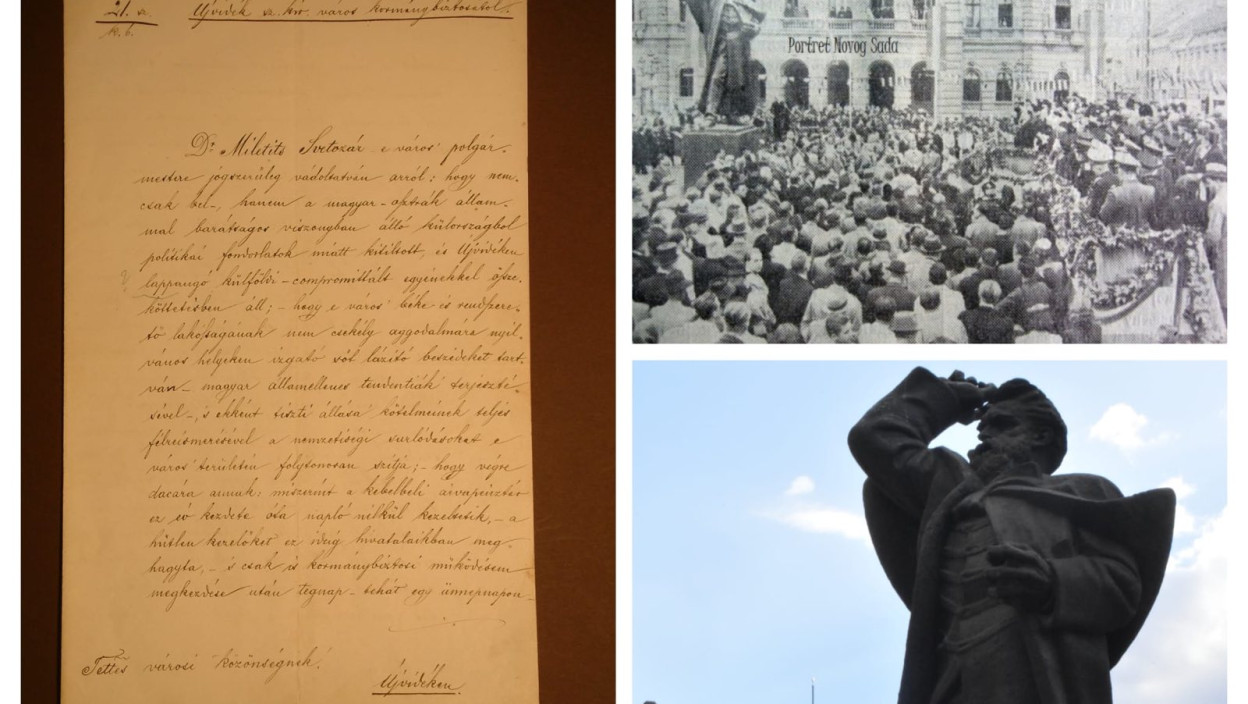 21. sz. Újvidék sz. kir. város kormánybiztosától.
Dr Miletits Svetozár e város' polgár-
mestere jogszerüleg vádoltatván arról: hogy nem-
csak bel-, hanem a magyar-osztrák állam-
mal barátságos viszonyban álló külországból
politikai fondorlatok miatt kitiltott, és Újvidéken
lappangó külföldi-compromittált egyénekkel össze-
köttetésben áll; - hogy e város' béke és rendszere-
tő lakósságának nem csekély aggodalmára nyil-
vános helyeken izgató sőt lázitó beszédeket tart-
ván - magyar államellenes tendentiák terjeszté-
sével -, s ekként tiszti állása' kötelmeinek teljes
félreismerésével a nemzetiségi surlódásokat e
város' területén folytonosan szitja; - hogy végre
dacára annak: miszerint a kebelbeli árvapénztár
ez év kezdete óta napló nélkül kezeltetik, - a
hűtlen kezelőket ez ideig hivatalaikban meg-
hagyta, - s csak is kormánybiztosi működésem
megkezdése után tegnap - tehát egy ünnepnapon -
Tettes városi közönségnek!
Újvidéken.
Portret Novog Sada